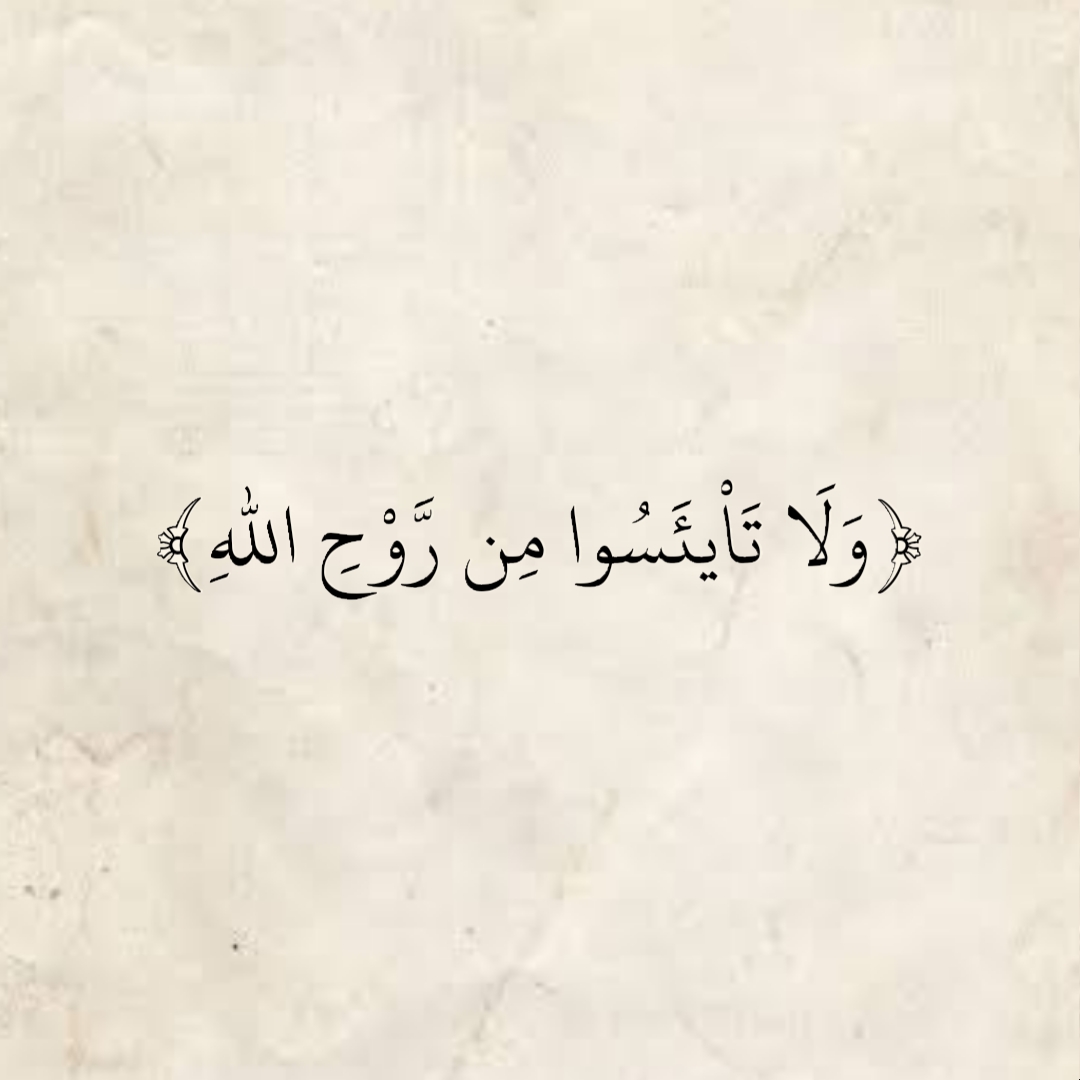 ﴿وَلَا تَاْيئَسُوا مِن رَّوْحِ اللهِ﴾